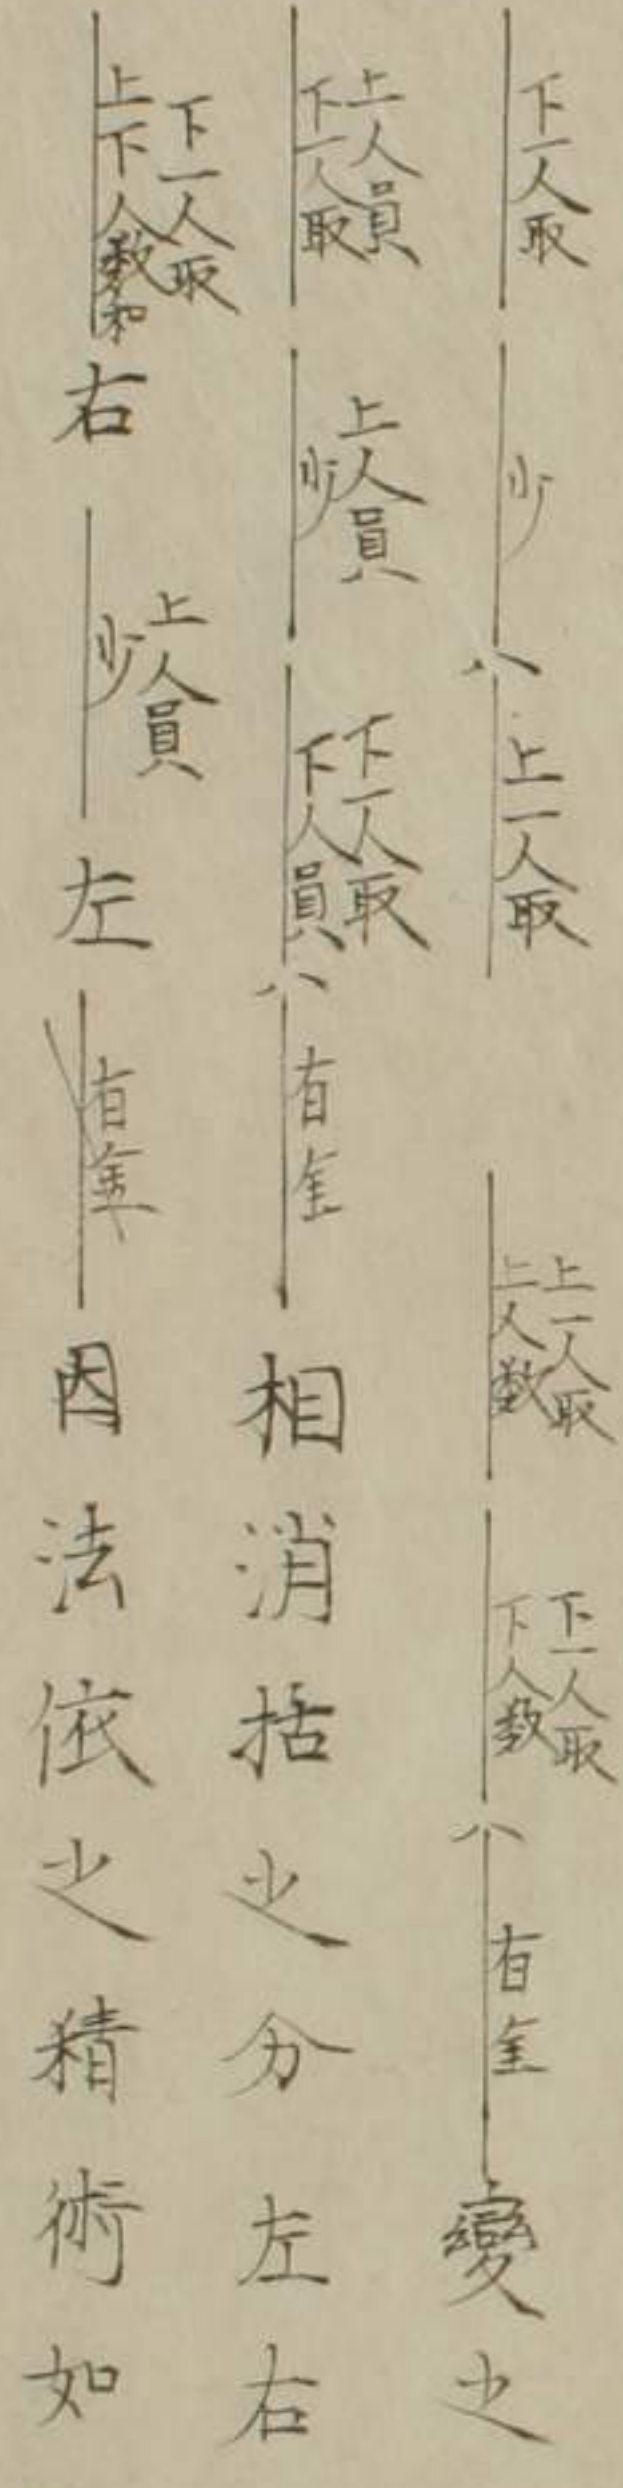 下一人取 少 八 上一人取 上一人取 上人数 下一人取 下人数 八 有金 變之
上人員 下一人取 上人員 少 下一人取 下人員 八 有金 相消括之分左右
下一人取 上下人数和 右 上人員 少 左 有金 因法依之精術如